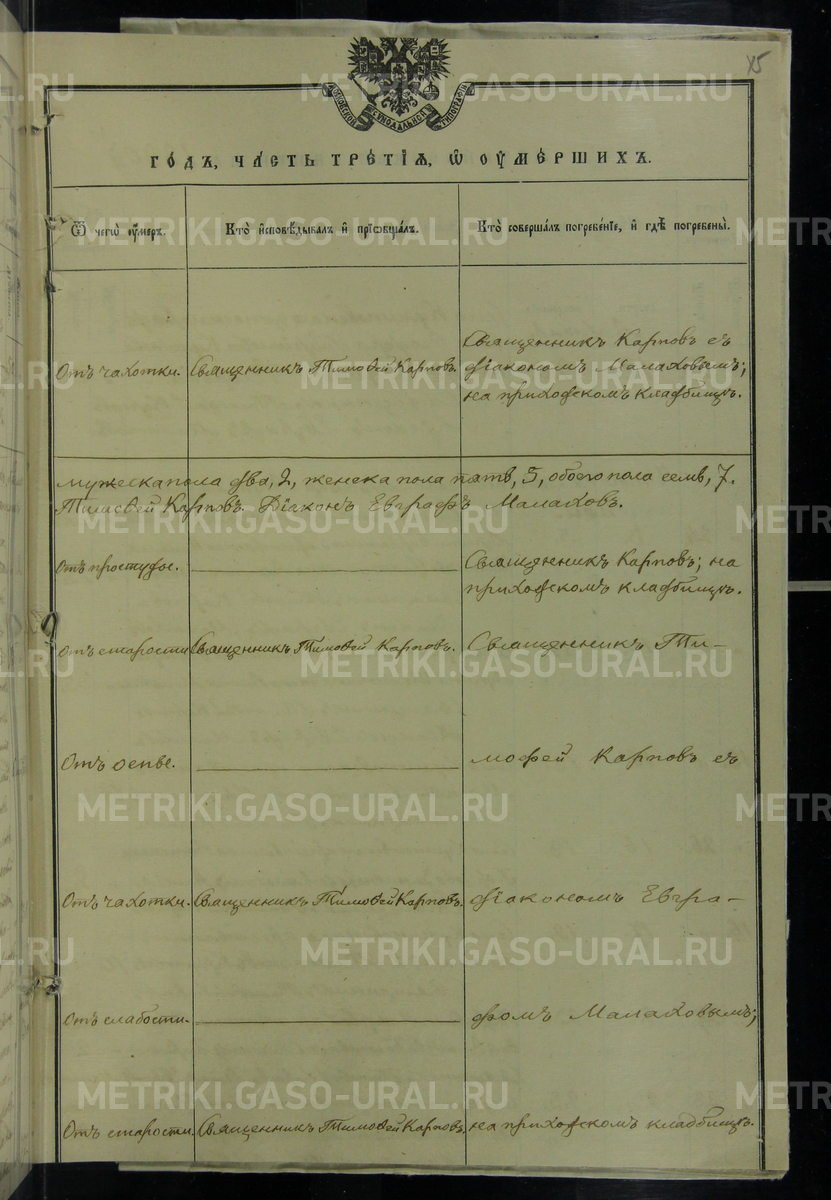 15
МОСКОВСКОЙ СѴНОДАЛЬНОЙ ТИПОГРАФІИ
ГО́ДЪ, ЧА́СТЬ ТРЕ́ТІѦ, Ѡ҆ ОУ҆МЕ́РШИХЪ.
Ѿ чегѡ̀ оу҆́меръ.
Кто̀ и҆сповѣ́дывалъ и҆ прїѡбща́лъ.
Кто̀ соверша́лъ погребе́нїе, и҆ гдѣ̀ погребены̀.
Отъ чахотки.
Священникъ Тимоѳей Карповъ.
Священникъ Карповъ съ
діакономъ Малаховымъ;
на приходскомъ кладбищѣ.
мужеска пола два, 2, женска пола пять, 5, обоего пола семь, 7.
Тимоѳей Карповъ. Діаконъ Евграфъ Малаховъ.
Отъ простуды.
Священникъ Карповъ; на
приходскомъ кладбищѣ.
Отъ старости
Священникъ Тимоѳей Карповъ.
Священникъ Ти-
Отъ оспы.
мофей Карповъ съ
Отъ чахотки.
Священникъ Тимоѳей Карповъ.
діакономъ Евгра-
Отъ слабости.
фомъ Малаховымъ;
Отъ старости.
Священникъ Тимоѳей Карповъ.
на приходскомъ кладбищѣ.
METRIKI.GASO-URAL.RU